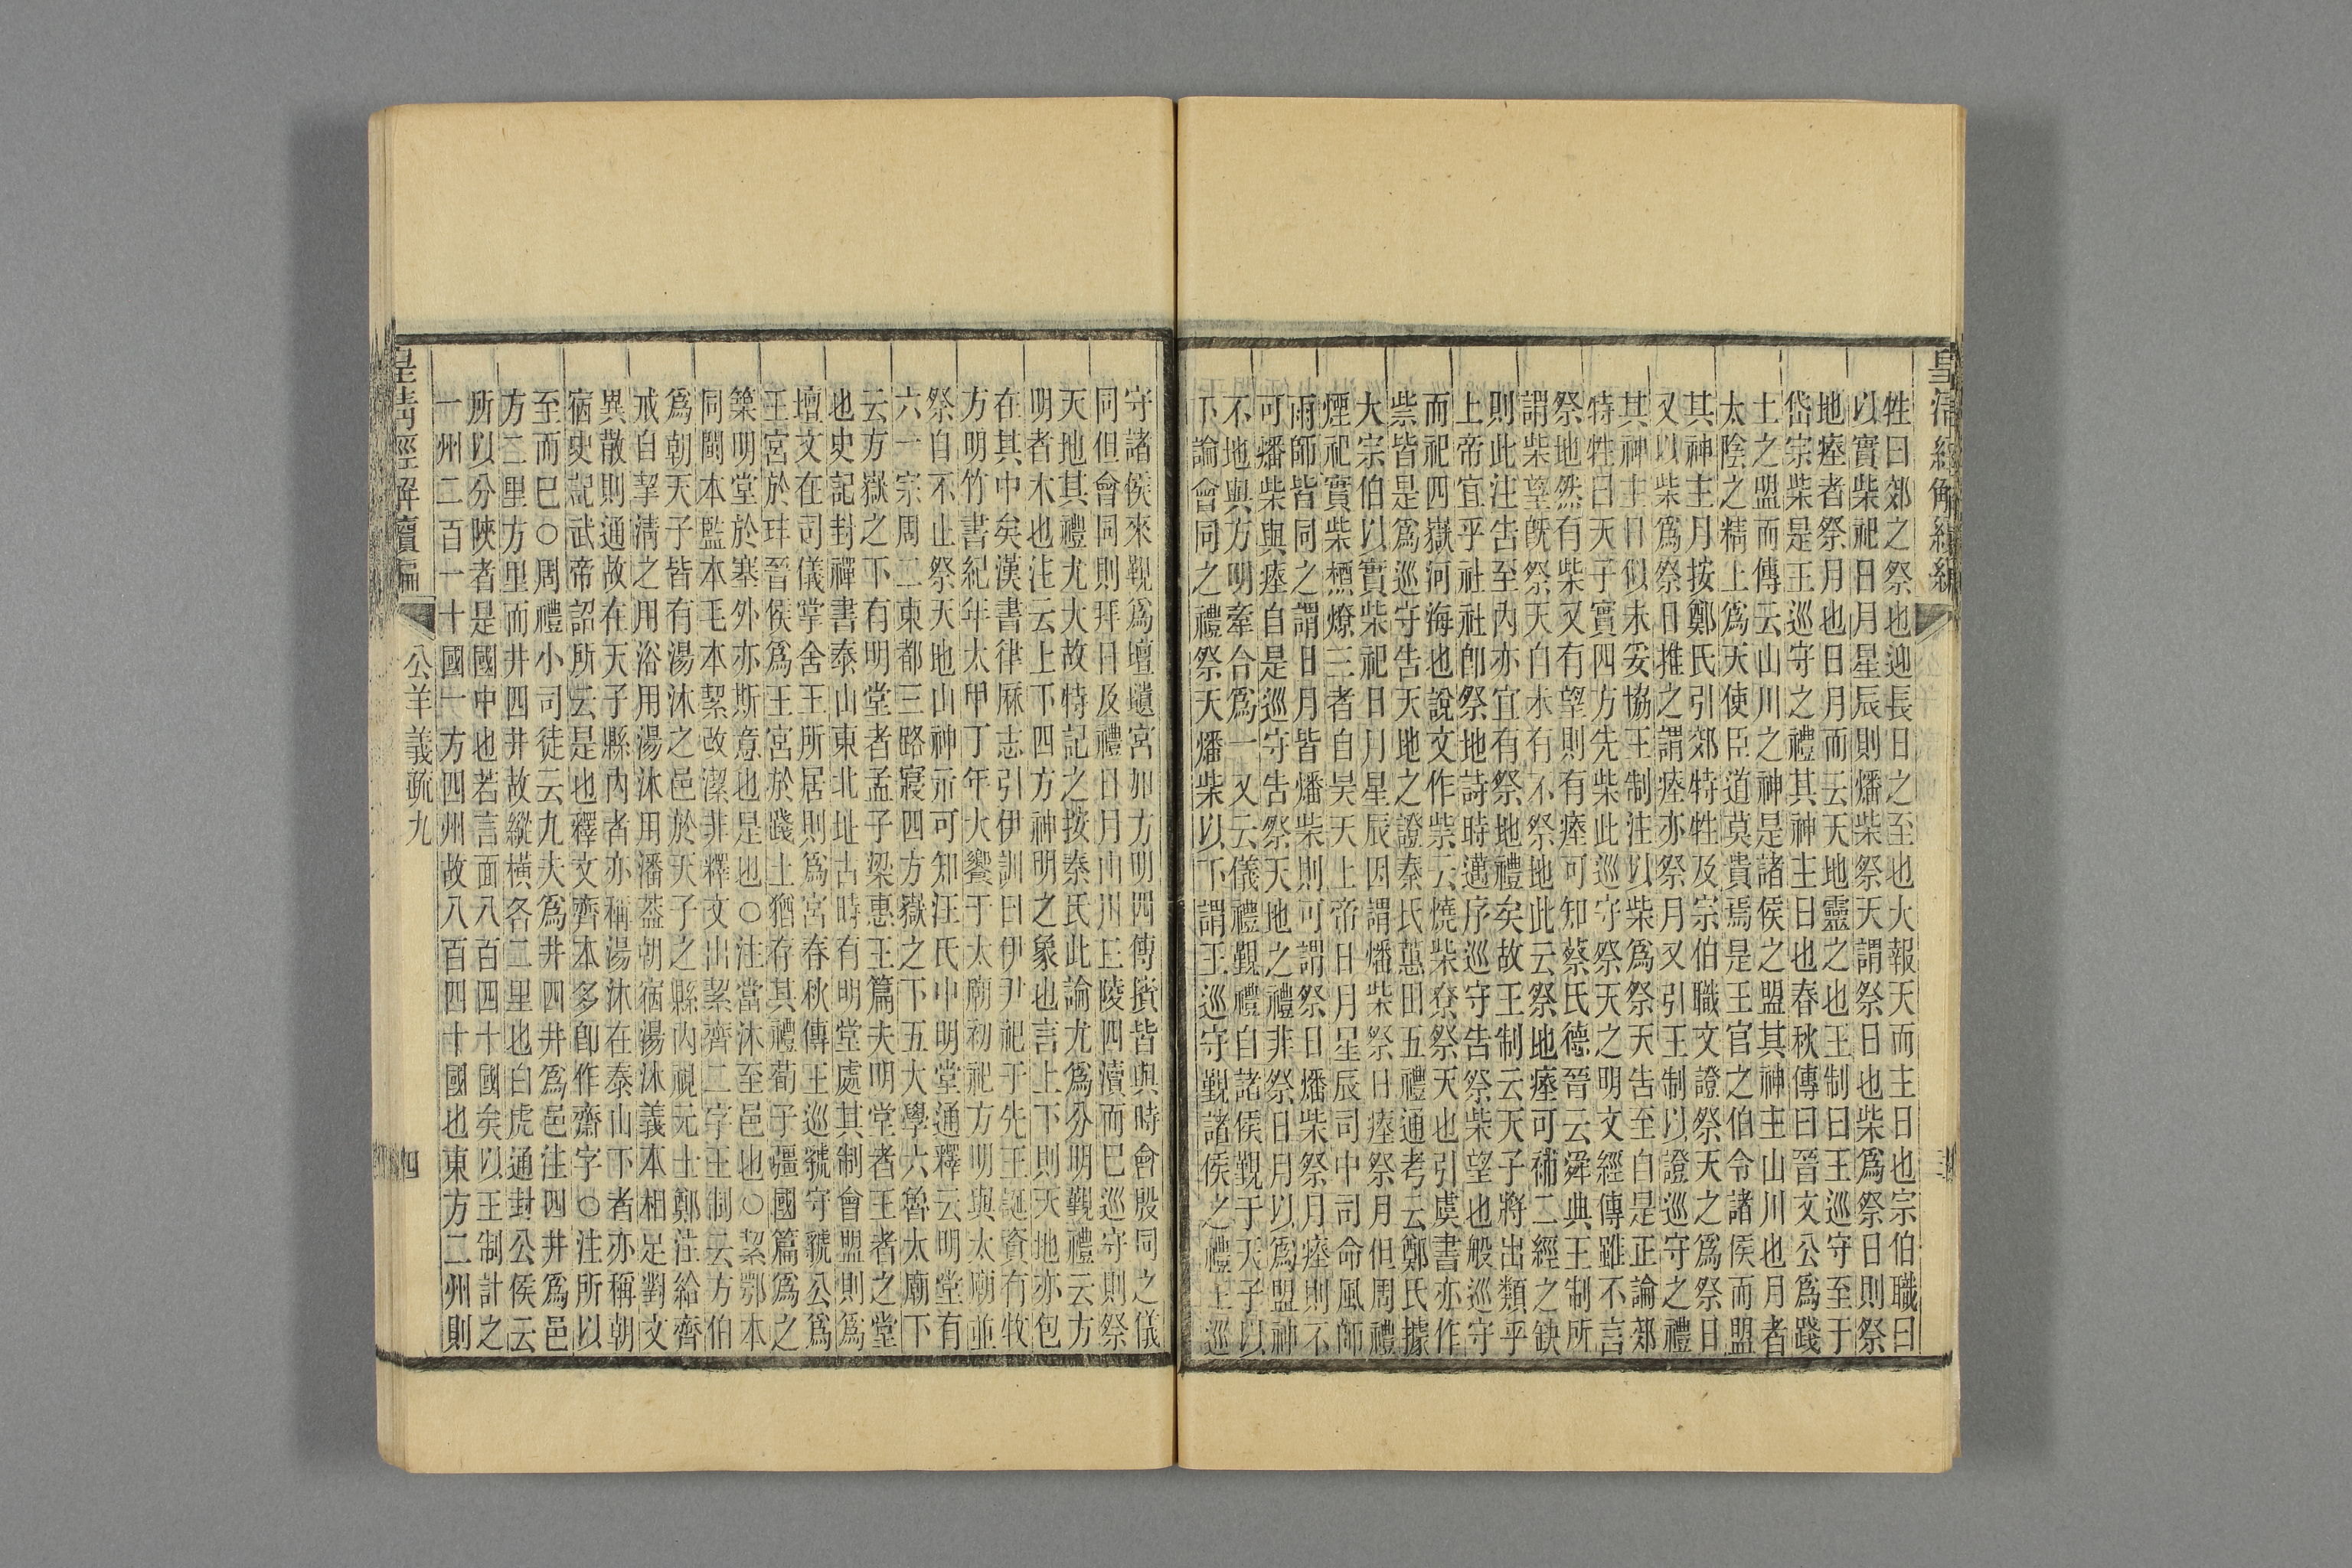 皇清經解續編
牲曰郊之祭也迎長日之至也大報天而主日也宗伯職曰
以實柴祀日月星辰則燔柴祭天謂祭日也柴爲祭日則祭
地瘞者祭月也日月而云天地靈之也王制曰王巡守至于
岱宗柴是王巡守之禮其神主日也春秋傳曰晉文公爲踐
土之盟而傳云山川之神是諸侯之盟其神主山川也月者
太陰之精上爲天使臣道莫貴焉是王官之伯令諸侯而盟
其神主月按鄭氏引郊特牲及宗伯職文證祭天之爲祭日
又以柴爲祭日推之謂瘞亦祭月又引王制以證巡守之禮
其神主日似未妥協王制注以柴爲祭天告至自是正論郊
特牲曰天子實四方先柴此巡守祭天之明文經傳雖不言
祭地然有柴又有望則有瘞可知蔡氏德晉云舜典王制所
謂柴望既祭天自未有不祭地此云祭地瘞可補二經之缺
則此注告至內亦宜有祭地禮矣故王制云天子將出類乎
上帝宜乎社社卽祭地詩時邁序巡守告祭柴望也般巡守
而祀四嶽河海也說文作祡云燒柴尞祭天也引虞書亦作
祡皆是爲巡守告天地之證秦氏蕙田五禮通考云鄭氏據
大宗伯以實柴祀日月星辰因謂燔柴祭日瘞祭月但周禮
煙祀實柴槱燎三者自昊天上帝日月星辰司中司命風師
雨師皆同之謂日月皆燔柴則可謂祭日燔柴祭月瘞則不
可燔柴與瘞自是巡守告祭天地之禮非祭日月以爲盟神
不地與方明牽合爲一又云儀禮覲禮自諸侯覲于天子以
下論會同之禮祭天燔柴以下謂王巡守覲諸侯之禮王巡
三
守諸侯來覲爲壇壝宮加方明四傳擯皆與時會殷同之儀
同但會同則拜日及禮日月山川丘陵四瀆而已巡守則祭
天地其禮尤大故特記之按秦氏此論尤爲分明覲禮云方
明者木也注云上下四方神明之象也言上下則天地亦包
在其中矣漢書律厤志引伊訓曰伊尹祀于先王誕資有牧
方明竹書紀年太甲丁年大饗于太廟初祀方明與太廟並
祭自不止祭天地山神示可知汪氏中明堂通釋云明堂有
六一宗周二東都三路寢四方嶽之下五大學六魯太廟下
云方嶽之下有明堂者孟子梁惠王篇夫明堂者王者之堂
也史記封禪書泰山東北址古時有明堂處其制會盟則爲
壇文在司儀掌舍王所居則爲宮春秋傳王巡虢守虢公爲
王宮於玤晉侯爲王宮於踐土猶存其禮荀子疆國篇爲之
築明堂於塞外亦斯意也是也○注當沐至邑也○絜鄂本
同閩本監本毛本絜改潔非釋文出絜齊二字王制云方伯
爲朝天子皆有湯沐之邑於天子之縣內視元士鄭注給齊
戒自挈淸之用浴用湯沐用潘葢朝宿湯沐義本相足對文
異散則通故在天子縣內者亦稱湯沐在泰山下者亦稱朝
宿史記武帝詔所云是也釋文齊本多卽作齋字○注所以
至而已○周禮小司徒云九夫爲井四井爲邑注四井爲邑
方二里方里而井四井故縱橫各二里也白虎通封公侯云
所以分陝者是國中也若言面八百四十國矣以王制計之
一州二百一十國一方四州故八百四十國也東方二州則
皇清經解續編
公羊義疏九
四